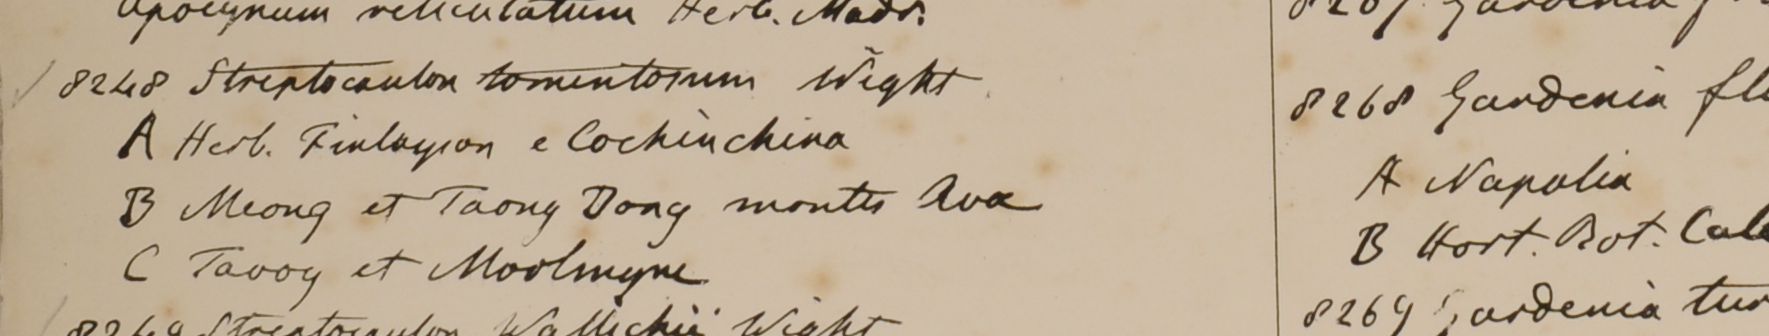 Apocynum reticulatum Herb. Madr.
8248 Streptocaulon tomentosum Wight
A Herb. Finlayson e Cochinchina
B Meong et Taong Dong montes Ava
C Tavoy et Moolmyne
8249 Streptocaulon Wallichii Wight
8267 Gardenia
8268 Gardenia
A Napalia
B Hort. Bot. Cal
8269 Gardenia